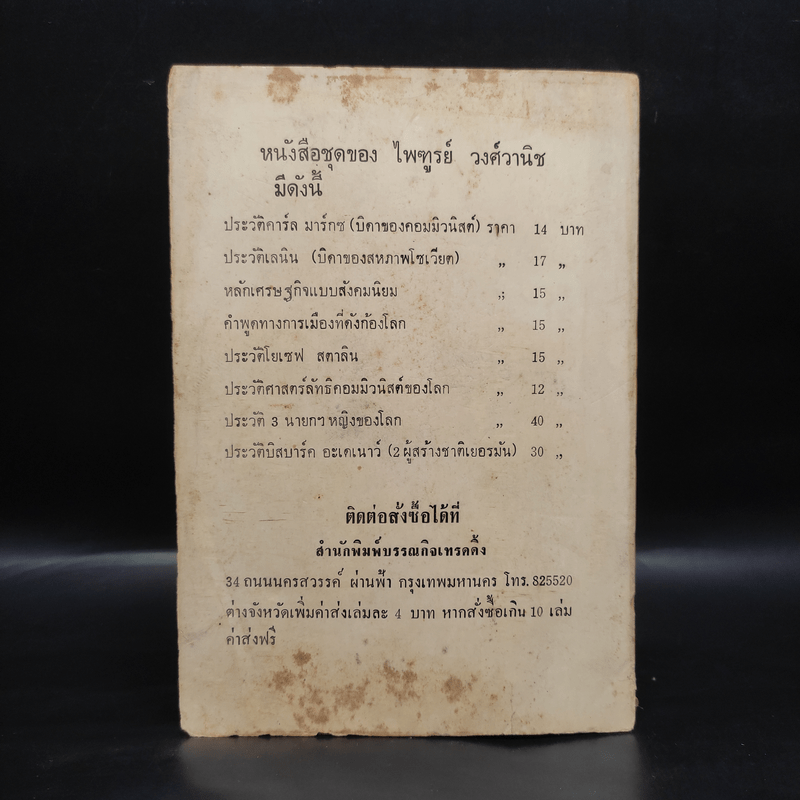 หนังสือชุดของ ไพฑูรย์ วงศ์วานิช
มีดังนี้
ประวัติคาร์ล มาร์กซ (บิดาของคอมมิวนิสต์) ราคา 14 บาท
ประวัติเลนิน (บิดาของสหภาพโซเวียต) „ 17 „
หลักเศรษฐกิจแบบสังคมนิยม „ 15 „
คำพูดทางการเมืองที่ดังก้องโลก „ 15 „
ประวัติโยเซฟ สตาลิน „ 15 „
ประวัติศาสตร์ลัทธิคอมมิวนิสต์ของโลก „ 12 „
ประวัติ 3 นายกฯ หญิงของโลก „ 40 „
ประวัติบิสบาร์ค อะเดเนาว์ (2 ผู้สร้างชาติเยอรมัน) 30 „
ติดต่อสั่งซื้อได้ที่
สำนักพิมพ์บรรณกิจเทรดดิ้ง
34 ถนนนครสวรรค์ ผ่านฟ้า กรุงเทพมหานคร โทร. 825520
ต่างจังหวัดเพิ่มค่าส่งเล่มละ 4 บาท หากสั่งซื้อเกิน 10 เล่ม
ค่าส่งฟรี